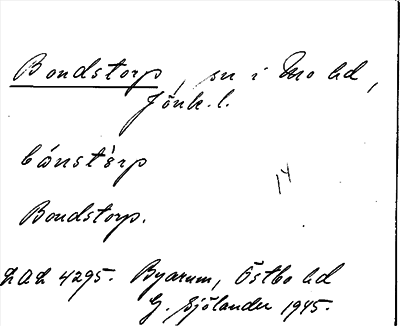 Bondstorp, sn i Mo hd,
Jönk. l.
bónstèrp
14
Bondstorp.
LAL 4295. Byarum, Östbo hd
G. Sjölander 1945.